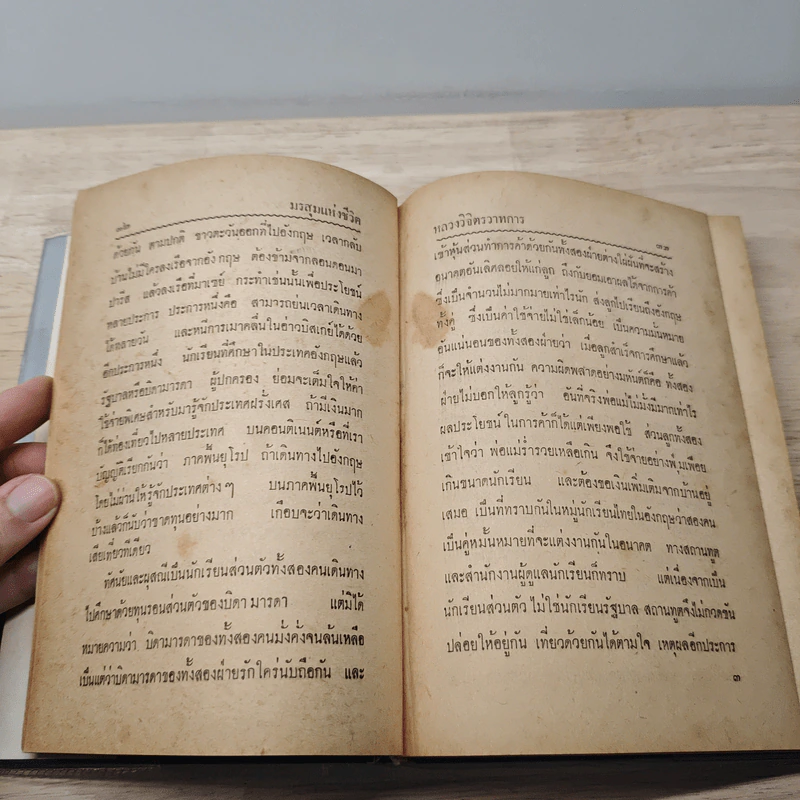 ๓๒
มรสุมแห่งชีวิต
ด้วยกัน ตามปกติ ชาวตะวันออกที่ไปอังกฤษ เวลากลับ
บ้านไม่มีใครลงเรือจากอังกฤษ ต้องข้ามจากลอนดอนมา
ปารีส แล้วลงเรือที่มาเซย์ กระทำเช่นนั้นเพื่อประโยชน์
หลายประการ ประการหนึ่งคือ สามารถย่นเวลาเดินทาง
ได้หลายวัน และหนีการเมาคลื่นในอ่าวบิสเกย์ได้ด้วย
อีกประการหนึ่ง นักเรียนที่ศึกษาในประเทศอังกฤษแล้ว
รัฐบาลหรือบิดามารดา ผู้ปกครอง ย่อมจะเต็มใจให้ค่า
ใช้จ่ายพิเศษสำหรับมารู้จักประเทศฝรั่งเศส ถ้ามีเงินมาก
ก็ได้ท่องเที่ยวไปหลายประเทศ บนคอนติเนนต์หรือที่เรา
บัญญัติเรียกกันว่า ภาคพื้นยุโรป ถ้าเดินทางไปอังกฤษ
โดยไม่ผ่านให้รู้จักประเทศต่าง ๆ บนภาคพื้นยุโรปไว้
บ้างแล้วก็นับว่าขาดทุนอย่างมาก เกือบจะว่าเดินทาง
เสียเที่ยวทีเดียว
ทัดนัยและผุสณีเป็นนักเรียนส่วนตัวทั้งสองคนเดินทาง
ไปศึกษาด้วยทุนรอนส่วนตัวของบิดา มารดา แต่มิได้
หมายความว่า บิดามารดาของทั้งสองคนมั่งคั่งจนล้นเหลือ
เป็นแต่ว่าบิดามารดาของทั้งสองฝ่ายรักใคร่นับถือกัน และ
หลวงวิจิตรวาทการ
๓๓
เข้าหุ้นส่วนทำการค้าด้วยกันทั้งสองฝ่ายต่างใฝ่ฝันที่จะสร้าง
อนาคตอันเลิศลอยให้แก่ลูก ถึงกับยอมเอาผลได้จากการค้า
ซึ่งเป็นจำนวนไม่มากมายเท่าไรนัก ส่งลูกไปเรียนถึงอังกฤษ
ทั้งคู่ ซึ่งเป็นค่าใช้จ่ายไม่ใช่เล็กน้อย เป็นความมั่นหมาย
อันแน่นอนของทั้งสองฝ่ายว่า เมื่อลูกสำเร็จการศึกษาแล้ว
ก็จะให้แต่งงานกัน ความผิดพลาดอย่างมหันต์ก็คือ ทั้งสอง
ฝ่ายไม่บอกให้ลูกรู้ว่า อันที่จริงพ่อแม่ไม่มั่งมีมากเท่าไร
ผลประโยชน์ในการค้าก็ได้แต่เพียงพอใช้ ส่วนลูกทั้งสอง
เข้าใจว่า พ่อแม่ร่ำรวยเหลือเกิน จึงใช้จ่ายอย่างฟุ่มเฟือย
เกินขนาดนักเรียน และต้องขอเงินเพิ่มเติมจากบ้านอยู่
เสมอ เป็นที่ทราบกันในหมู่นักเรียนไทยในอังกฤษว่าสองคน
เป็นคู่หมั้นหมายที่จะแต่งงานกันในอนาคต ทางสถานทูต
และสำนักงานผู้ดูแลนักเรียนก็ทราบ แต่เนื่องจากเป็น
นักเรียนส่วนตัว ไม่ใช่นักเรียนรัฐบาล สถานทูตจึงไม่กวดขัน
ปล่อยให้อยู่กัน เที่ยวด้วยกันได้ตามใจ เหตุผลอีกประการ
๓